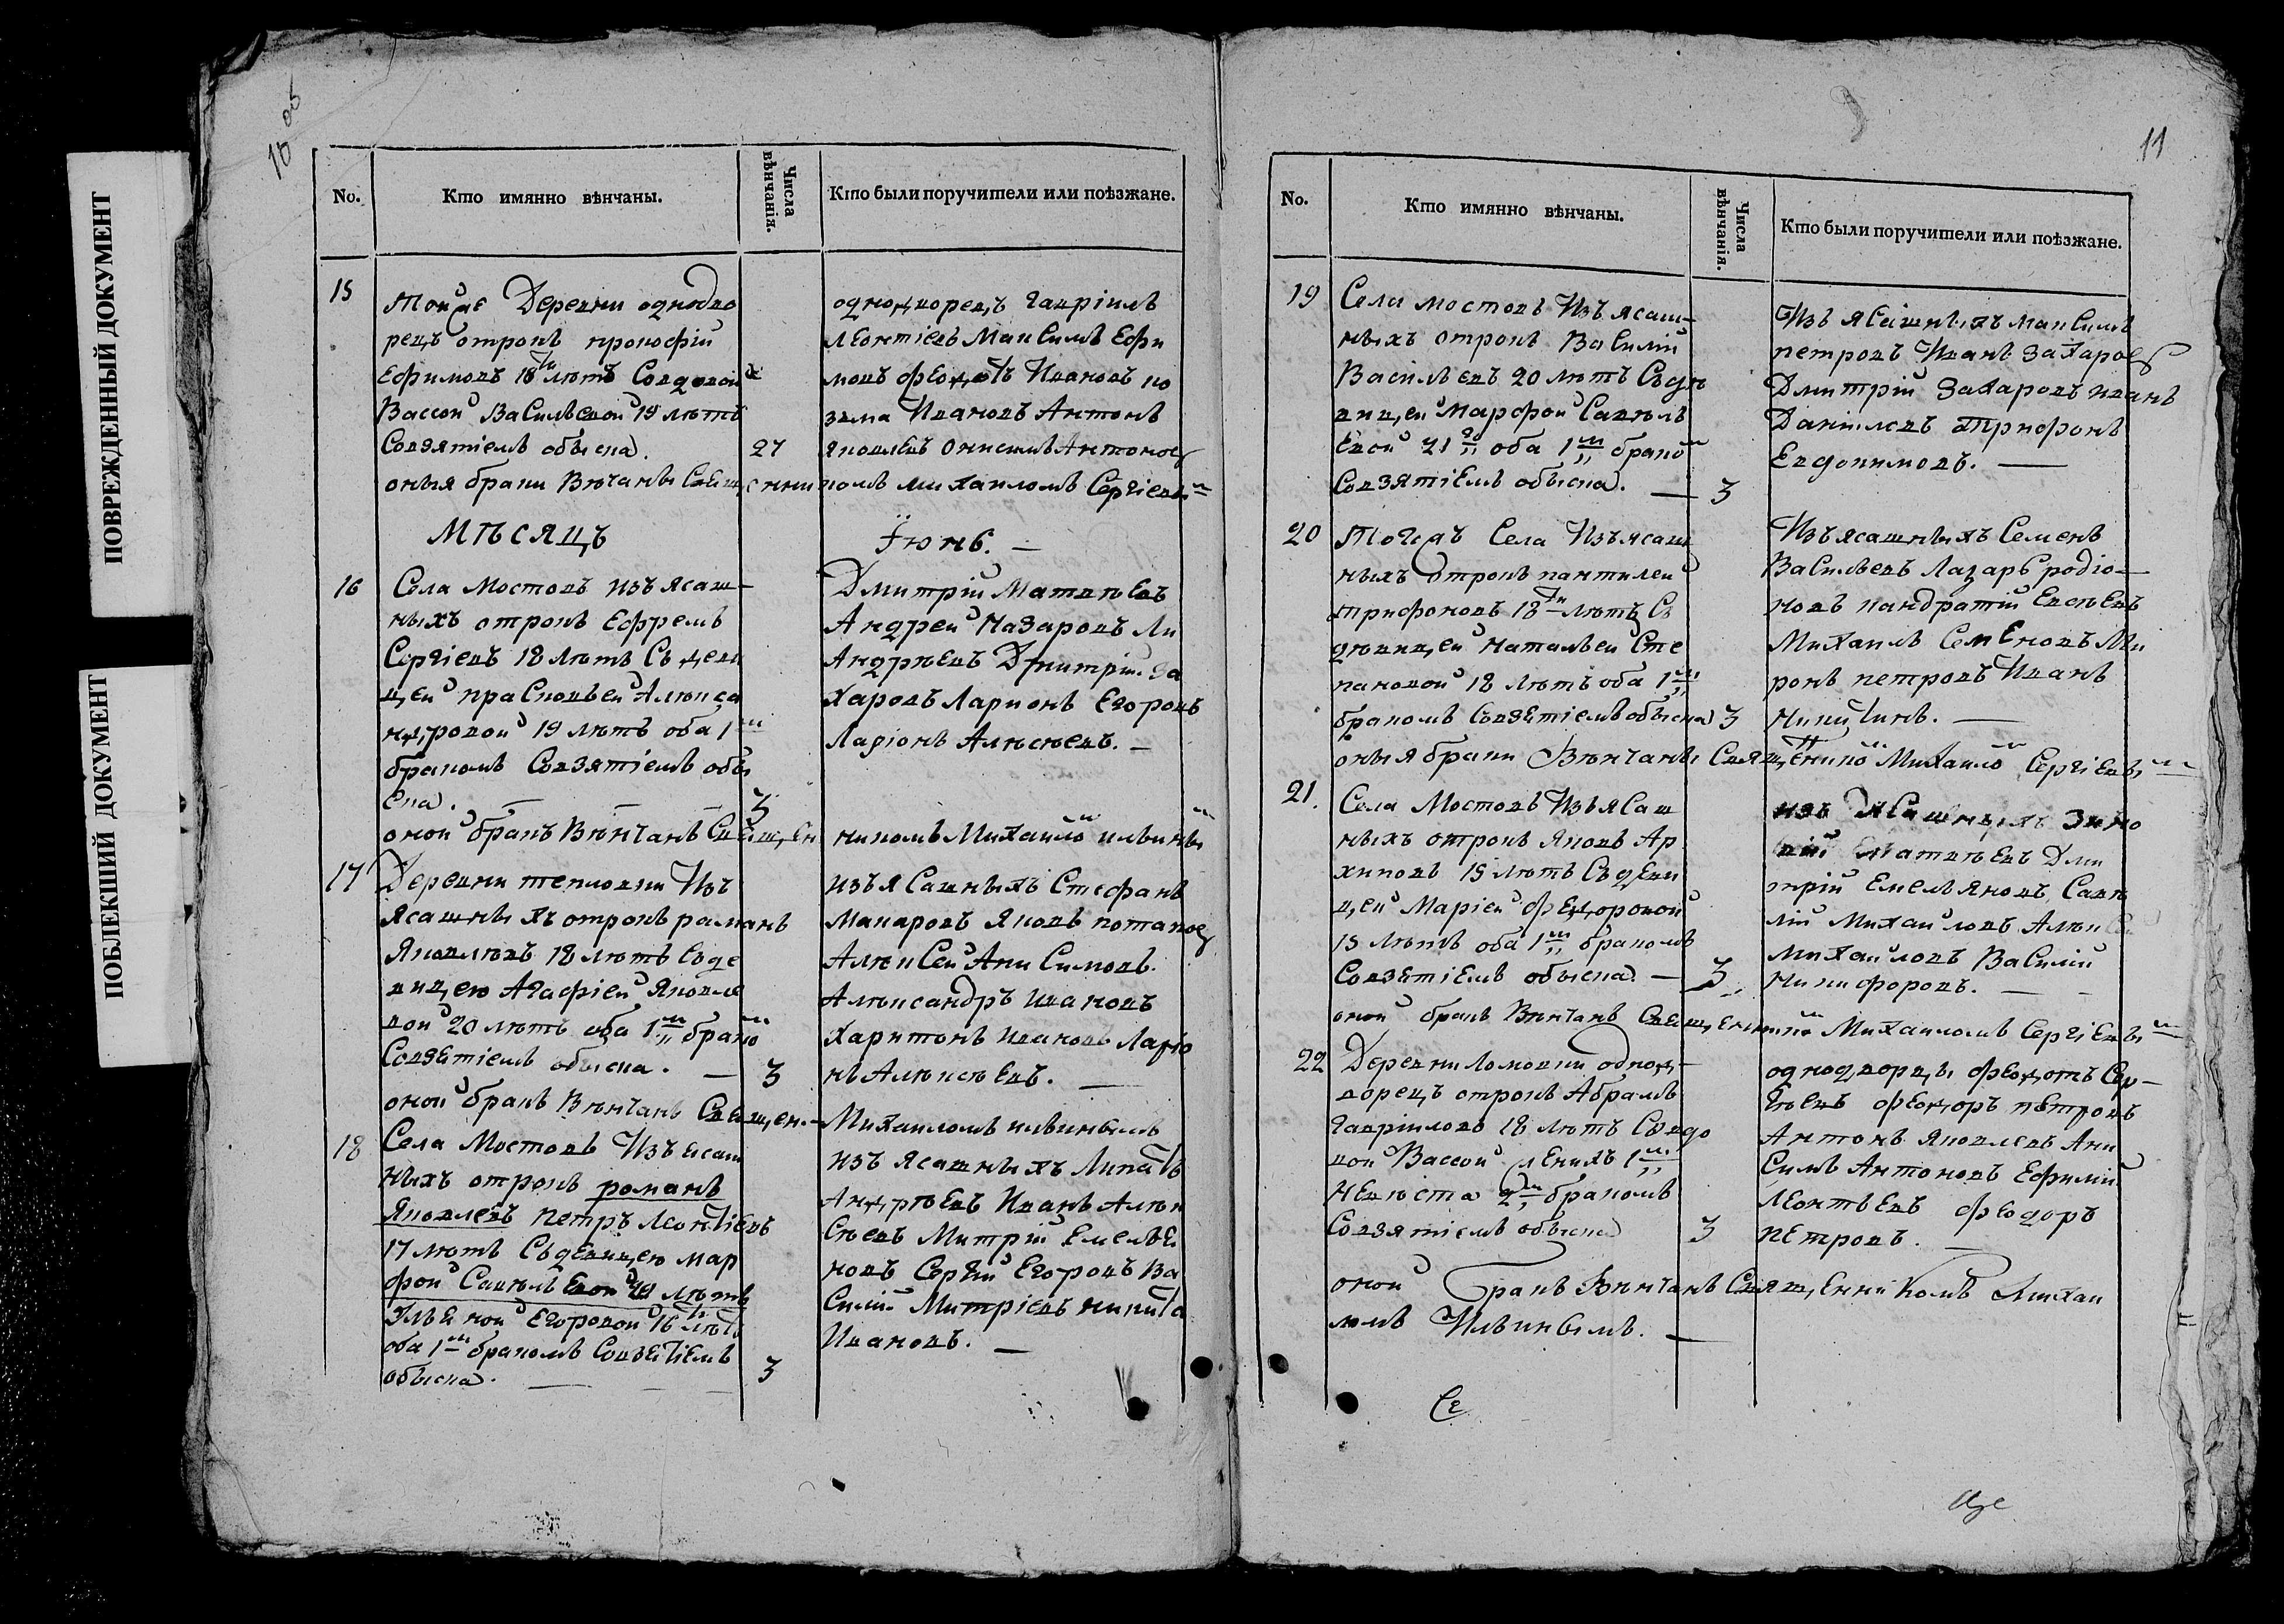 ПОВРЕЖДЕННЫЙ ДОКУМЕНТ
ПОБЛЕКШИЙ ДОКУМЕНТ
10 об
No.
Кто имянно вѣнчаны.
Числа вѣнчанія.
Кто были поручители или поѣзжане.
15
Тойже Деревни однодво
рецъ отрокъ прокофій
Ефимовъ 18ти лѣтъ Совдовой
Вассой Васильевой 19 лѣтъ
Совзятіемъ обыска. 27
однодворецъ гавріилъ
леонтіевъ Максимъ Ефи
мовъ федотъ Ивановъ ко
зма Ивановъ Антонъ
яковлевъ Онисимъ Антоновъ
оныя браки Вѣнчаны Свящ,енникомъ михаиломъ Сергіевым
МѢСЯЦЪ Їюнь. —
16
Села Мостовъ изъ ясаш-
ныхъ отрокъ Ефремъ
Сергіевъ 18 лѣтъ Съ деви
ц,ей праскофьей Алекса
нд,ровой 19 лѣтъ оба 1м
бракомъ Совзятіемъ обы
ска. — — — 3
Дмитрій Матвѣевъ
Андрей Назаровъ Ли
Андрѣевъ Дмитрій За
харовъ Ларионъ Егоровъ
Ларіонъ Алѣксѣевъ. —
оной бракъ Вѣнчанъ Священникомъ Михаило ильины
17
Деревни тепловки Изъ
Ясашныхъ отрокъ раманъ
Яковлѣвъ 18 лѣтъ Съде
виц,ею Агафіей Яковле
вой 20 лѣтъ оба 1м брако
Совзятіемъ обыска. — 3
изъ ясашныхъ Стефанъ
Макаровъ Яковъ потапов
Алѣксей Ани Симовъ.
Алѣксандръ Ивановъ
Харитонъ Ивановъ Ларіо
нъ Алѣксѣевъ. —
оной бракъ Вѣнчанъ Свящ,ен.- Михаиломъ ильинымъ
18
Села Мостовъ Изъ ясаш
ныхъ отрокъ романъ
Яковлевъ петръ Леонтіевъ
17 лѣтъ Съ девицею мар
фой Савѣльевой лѣтъ
Ельеной Егоровой 16ти лѣтъ
оба 1м бракомъ Совзятіемъ
обыска. — — — 3
изъ ясашныхъ Липатъ
Анд,рѣевъ Иванъ Алѣк
Сѣевъ Митрій Емелья
новъ Сергій Егоровъ Ва
Силій Митріевъ никита
Ивановъ. —
11
No.
Кто имянно вѣнчаны.
Числа вѣнчанія.
Кто были поручители или поѣзжане.
19
Села мостовъ Изъ ясаш-
ныхъ отрокъ Василий
Васильевъ 20 лѣтъ Съдѣ
виц,ей Марфой Савѣль
Евой 21го оба 1м брако
Совзятіемъ обыска. — 3
Изъ ясашныхъ максимъ
петровъ Иванъ Захаров
Дмитрій Захаровъ иванъ
Даниловъ Трифонъ
Евдокимовъ. —
20
Тогожъ Села Изъясаш
ныхъ отрокъ пантилей
трифоновъ 18ти лѣтъ Съ
дѣвиц,ей натальей Сте
пановой 18 лѣтъ оба 1м
бракомъ Совзятіемъ обыска 3
Изъясашныхъ Семенъ
Васильевъ Лазарь родіо-
новъ кандратій Евсѣевъ
Михаилъ Семеновъ Ми
ронъ петровъ Иванъ
никитинъ. —
оныя браки Вѣнчаны Священнико Михаило Сергіевым
21.
Села Мостовъ Изъ яСаш
ныхъ отрокъ Яковъ Ар
хиповъ 15 лѣтъ Съ деви
ц,ей Маріей фед,оровой
15 лѣтъ оба 1м бракомъ
Совзятіемъ обыска. — 3
изъ яСашныхъ Зино
вій Матвѣевъ Дми
трій Емельяновъ Савѣ
лій Михайловъ Алѣк
михайловъ Василий
Никифоровъ. —
оной бракъ Вѣнчанъ Священико Михаиломъ Сергіевым
22
Деревни Ломовки однод,-
ворец,ъ отрокъ Абрамъ
гавріиловъ 18 лѣтъ Съвдо
вой Вассой женихъ 1м
Невѣста 2м бракомъ
Совзятіемъ обыска 3
однодворц,ы фед,отъ Сер-
гѣевъ фед,оръ петровъ
Антонъ Яковлевъ Ани
Симъ Антоновъ Ефимий
леонтьевъ феодоръ
петровъ. —
оной Бракъ Вѣнчанъ Свящ,енникомъ Михаи
ломъ Ильинымъ. —
Се